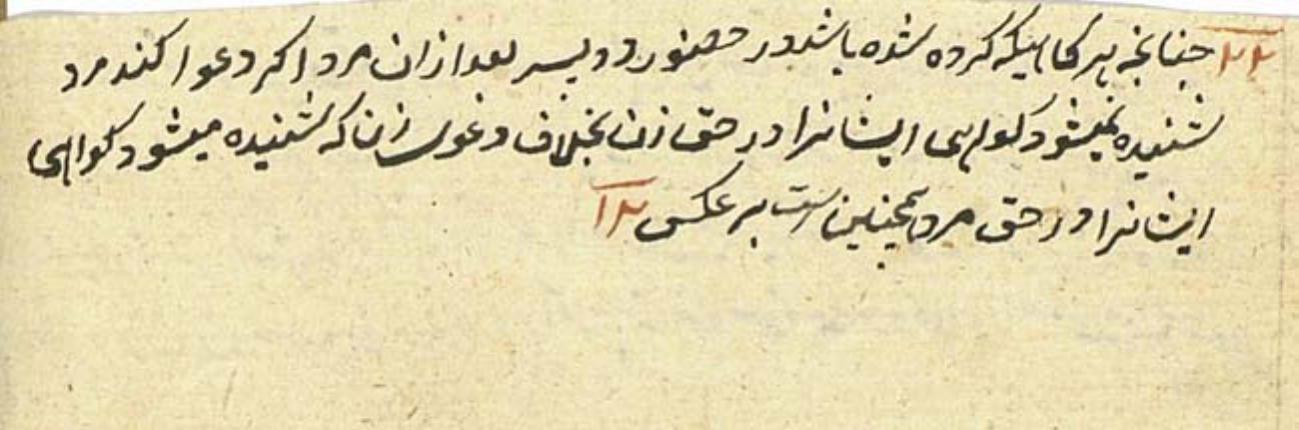 ۲۲ چنانچه هرگاهیکه کرده شده باشد در حضور دو پسر بعد ازان مرد اگر دعوا کند مرد
شنیده نمیشود کواهی ایشانرا در حق زن بخلاف دعوای زن که شنیده میشود کواهی
ایشانرا در حق مرد همچنین است بر عکس ۱۲